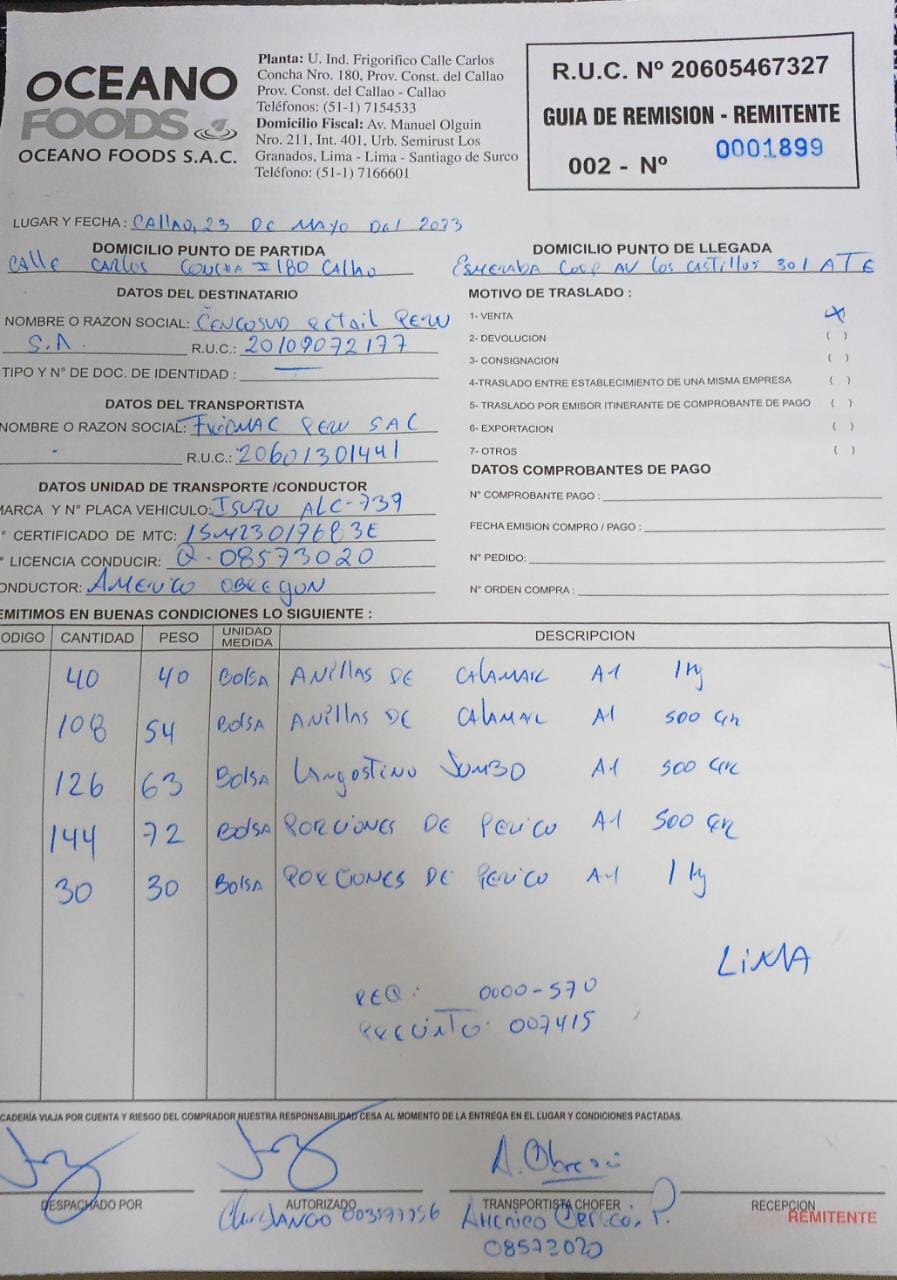 OCEANO
FOODS
OCEANO FOODS S.A.C.
Planta: U. Ind. Frigorifico Calle Carlos
Concha Nro. 180, Prov. Const. del Callao
Prov. Const. del Callao - Callao
Teléfonos: (51-1) 7154533
Domicilio Fiscal: Av. Manuel Olguin
Nro. 211, Int. 401, Urb. Semirust Los
Granados, Lima - Lima - Santiago de Surco
Teléfono: (51-1) 7166601
R.U.C. Nº 20605467327
GUIA DE REMISION - REMITENTE
002 - Nº 0001899
LUGAR Y FECHA : Callao, 23 De Mayo Del 2023
DOMICILIO PUNTO DE PARTIDA
Calle Carlos Concha # 180 Callao
DOMICILIO PUNTO DE LLEGADA
Coop AV Los Castillos 301 ATE
DATOS DEL DESTINATARIO
NOMBRE O RAZON SOCIAL: Cencosud Retail Peru
S.A. R.U.C.: 20109072177
TIPO Y N° DE DOC. DE IDENTIDAD :
MOTIVO DE TRASLADO :
1- VENTA X
2- DEVOLUCION ( )
3- CONSIGNACION ( )
4-TRASLADO ENTRE ESTABLECIMIENTO DE UNA MISMA EMPRESA ( )
5- TRASLADO POR EMISOR ITINERANTE DE COMPROBANTE DE PAGO ( )
6- EXPORTACION ( )
7- OTROS ( )
DATOS DEL TRANSPORTISTA
NOMBRE O RAZON SOCIAL: Peru SAC
R.U.C.: 20601301441
DATOS UNIDAD DE TRANSPORTE /CONDUCTOR
MARCA Y N° PLACA VEHICULO: Isuzu ALC-739
° CERTIFICADO DE MTC: 
° LICENCIA CONDUCIR: Q-08573020
ONDUCTOR: Americo Obregon
DATOS COMPROBANTES DE PAGO
N° COMPROBANTE PAGO :
FECHA EMISION COMPRO / PAGO :
N° PEDIDO:
N° ORDEN COMPRA :
EMITIMOS EN BUENAS CONDICIONES LO SIGUIENTE :
ODIGO CANTIDAD PESO UNIDAD MEDIDA DESCRIPCION
40 40 Bolsa Anillas De Calamar A1 1 kg
108 54 Bolsa Anillas De Calamar A1 500 Gr
126 63 Bolsa Langostino Jumbo A1 500 Gr
144 72 Bolsa Porciones De Perico A1 500 Gr
30 30 Bolsa Porciones De Perico A1 1 kg
LIMA
REQ: 0000-570
Precinto: 007415
CADERÍA VIAJA POR CUENTA Y RIESGO DEL COMPRADOR NUESTRA RESPONSABILIDAD CESA AL MOMENTO DE LA ENTREGA EN EL LUGAR Y CONDICIONES PACTADAS.
DESPACHADO POR
AUTORIZADO
TRANSPORTISTA CHOFER
RECEPCION
REMITENTE
08573020